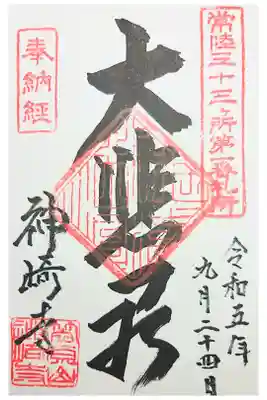 常陸三十三ヶ所第一番札所
令和五年
九月二十四日
大悲殿
奉納経
神崎寺